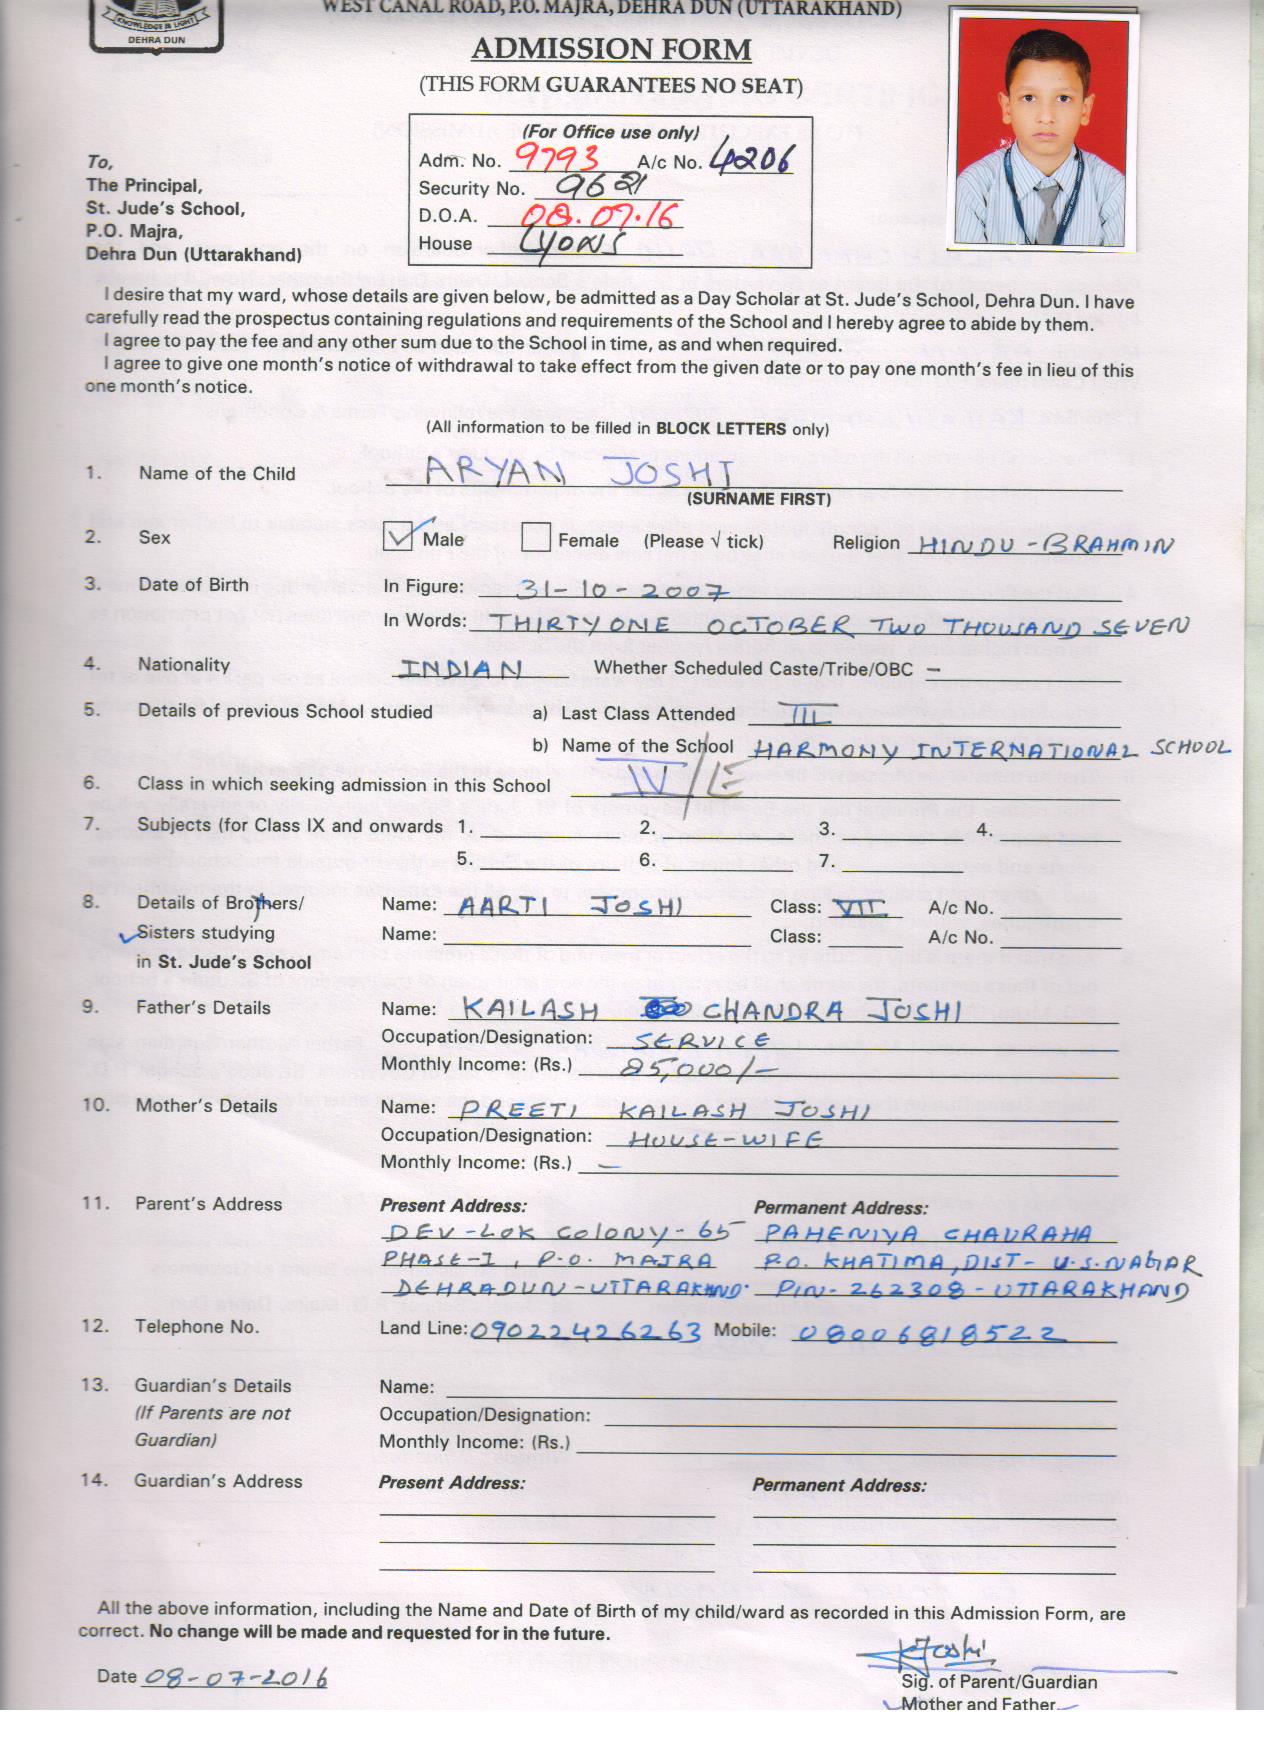 KNOWLEDGE IS LIGHT
DEHRA DUN
WEST CANAL ROAD, P.O. MAJRA, DEHRA DUN (UTTARAKHAND)
ADMISSION FORM
(THIS FORM GUARANTEES NO SEAT)
(For Office use only)
Adm. No. 9793 A/c No. 4206
Security No. 9621
D.O.A. 08.07.16
House Lyons
To,
The Principal,
St. Jude's School,
P.O. Majra,
Dehra Dun (Uttarakhand)
I desire that my ward, whose details are given below, be admitted as a Day Scholar at St. Jude's School, Dehra Dun. I have
carefully read the prospectus containing regulations and requirements of the School and I hereby agree to abide by them.
I agree to pay the fee and any other sum due to the School in time, as and when required.
I agree to give one month's notice of withdrawal to take effect from the given date or to pay one month's fee in lieu of this
one month's notice.
(All information to be filled in BLOCK LETTERS only)
1. Name of the Child ARYAN JOSHI
(SURNAME FIRST)
2. Sex Male Female (Please √ tick) Religion HINDU - BRAHMIN
3. Date of Birth In Figure: 31-10-2007
In Words: THIRTY ONE OCTOBER TWO THOUSAND SEVEN
4. Nationality INDIAN Whether Scheduled Caste/Tribe/OBC –
5. Details of previous School studied a) Last Class Attended III
b) Name of the School HARMONY INTERNATIONAL SCHOOL
6. Class in which seeking admission in this School IV/E
7. Subjects (for Class IX and onwards 1. 2. 3. 4.
5. 6. 7.
8. Details of Brothers/ Name: AARTI JOSHI Class: VII A/c No.
Sisters studying Name: Class: A/c No.
in St. Jude's School
9. Father's Details Name: KAILASH CHANDRA JOSHI
Occupation/Designation: SERVICE
Monthly Income: (Rs.) 85,000/-
10. Mother's Details Name: PREETI KAILASH JOSHI
Occupation/Designation: HOUSE-WIFE
Monthly Income: (Rs.) –
11. Parent's Address Present Address: Permanent Address:
DEV-LOK COLONY-65 PAHENIYA CHAURAHA
PHASE-I, P.O. MAJRA P.O. KHATIMA, DIST- U.S.NAGAR
DEHRADUN-UTTARAKHND. PIN- 262308 - UTTARAKHAND
12. Telephone No. Land Line: 09022426263 Mobile: 08006818522
13. Guardian's Details Name:
(If Parents are not Occupation/Designation:
Guardian) Monthly Income: (Rs.)
14. Guardian's Address Present Address: Permanent Address:
All the above information, including the Name and Date of Birth of my child/ward as recorded in this Admission Form, are
correct. No change will be made and requested for in the future.
KJoshi
Date 08-07-2016
Sig. of Parent/Guardian
Mother and Father